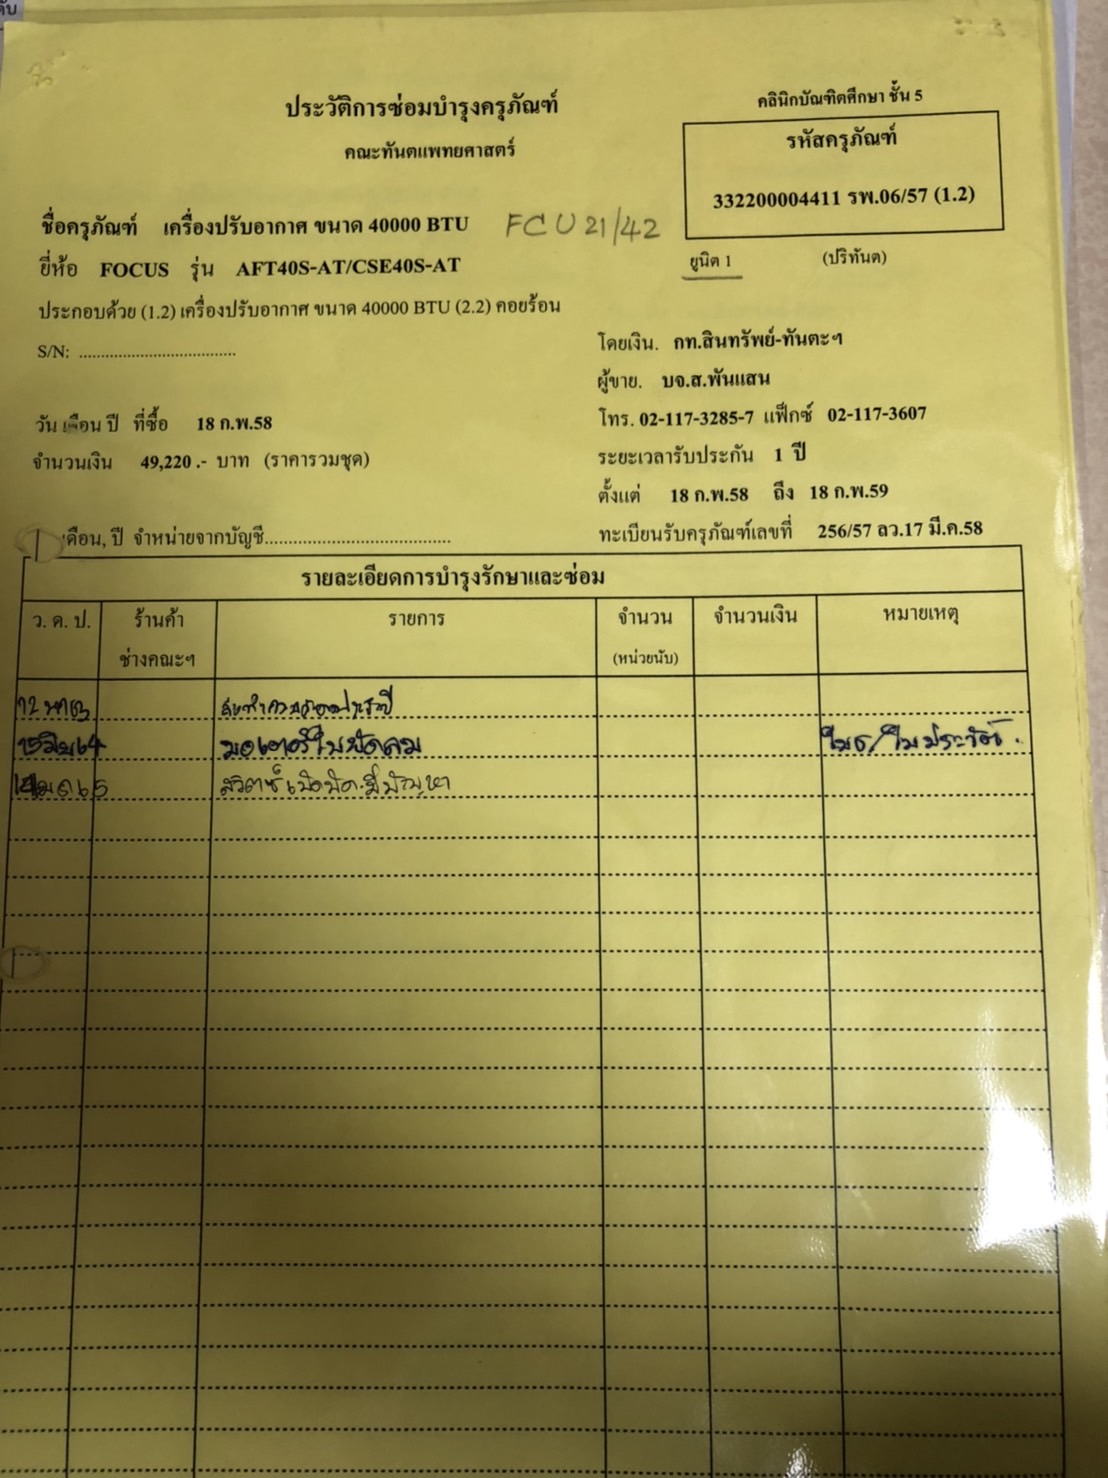 ประวัติการซ่อมบำรุงครุภัณฑ์
คณะทันตแพทยศาสตร์
คลินิกบัณฑิตศึกษา ชั้น 5
รหัสครุภัณฑ์
332200004411 รพ.06/57 (1.2)
ยูนิต 1 (ปริทันต)
ชื่อครุภัณฑ์ เครื่องปรับอากาศ ขนาด 40000 BTU FCU 21/42
ยี่ห้อ FOCUS รุ่น AFT40S-AT/CSE40S-AT
ประกอบด้วย (1.2) เครื่องปรับอากาศ ขนาด 40000 BTU (2.2) คอยร้อน
S/N: ....................................
โดยเงิน. กท.สินทรัพย์-ทันตะฯ
ผู้ขาย. บจ.ส.พันแสน
วัน เดือน ปี ที่ซื้อ 18 ก.พ.58
โทร. 02-117-3285-7 แฟ็กซ์ 02-117-3607
จำนวนเงิน 49,220.- บาท (ราคารวมชุด)
ระยะเวลารับประกัน 1 ปี
ตั้งแต่ 18 ก.พ.58 ถึง 18 ก.พ.59
เดือน, ปี จำหน่ายจากบัญชี.......................................
ทะเบียนรับครุภัณฑ์เลขที่ 256/57 ลว.17 มี.ค.58
รายละเอียดการบำรุงรักษาและซ่อม
ว. ด. ป. ร้านค้า ช่างคณะฯ รายการ จำนวน (หน่วยนับ) จำนวนเงิน หมายเหตุ
มอเตอร์ใบพัดลม
สวิตซ์เปิดปิด.มีปัญหา